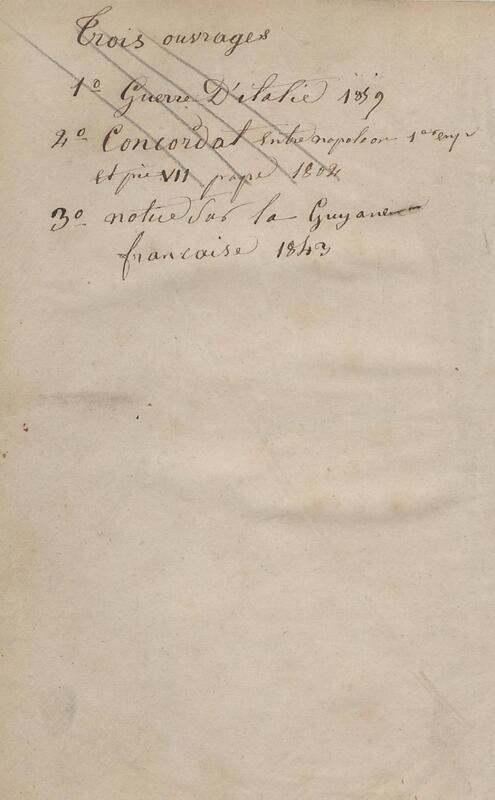 Trois ouvrages
1º Guerre D'italie 1859
2º Concordat entre napoleon 1er emp
et pie VII pape 1802
3º notice Sur la Guyane
francaise 1843